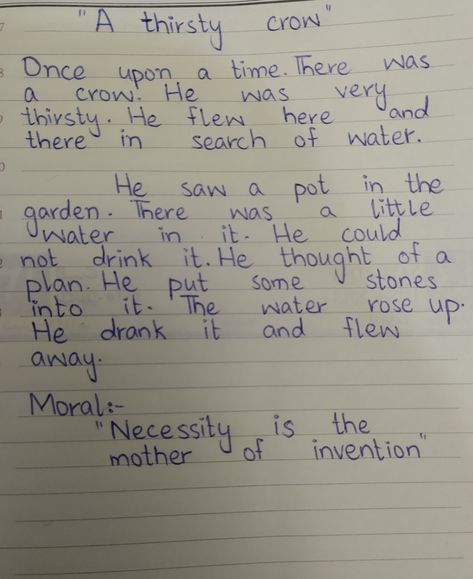 "A thirsty crow"
Once upon a time. There was
a crow. He was very
thirsty. He flew here and
there in search of water.
He saw a pot in the
garden. There was a little
water in it. He could
not drink it. He thought of a
plan. He put some stones
into it. The water rose up.
He drank it and flew
away.
Moral:-
"Necessity is the
mother of invention"